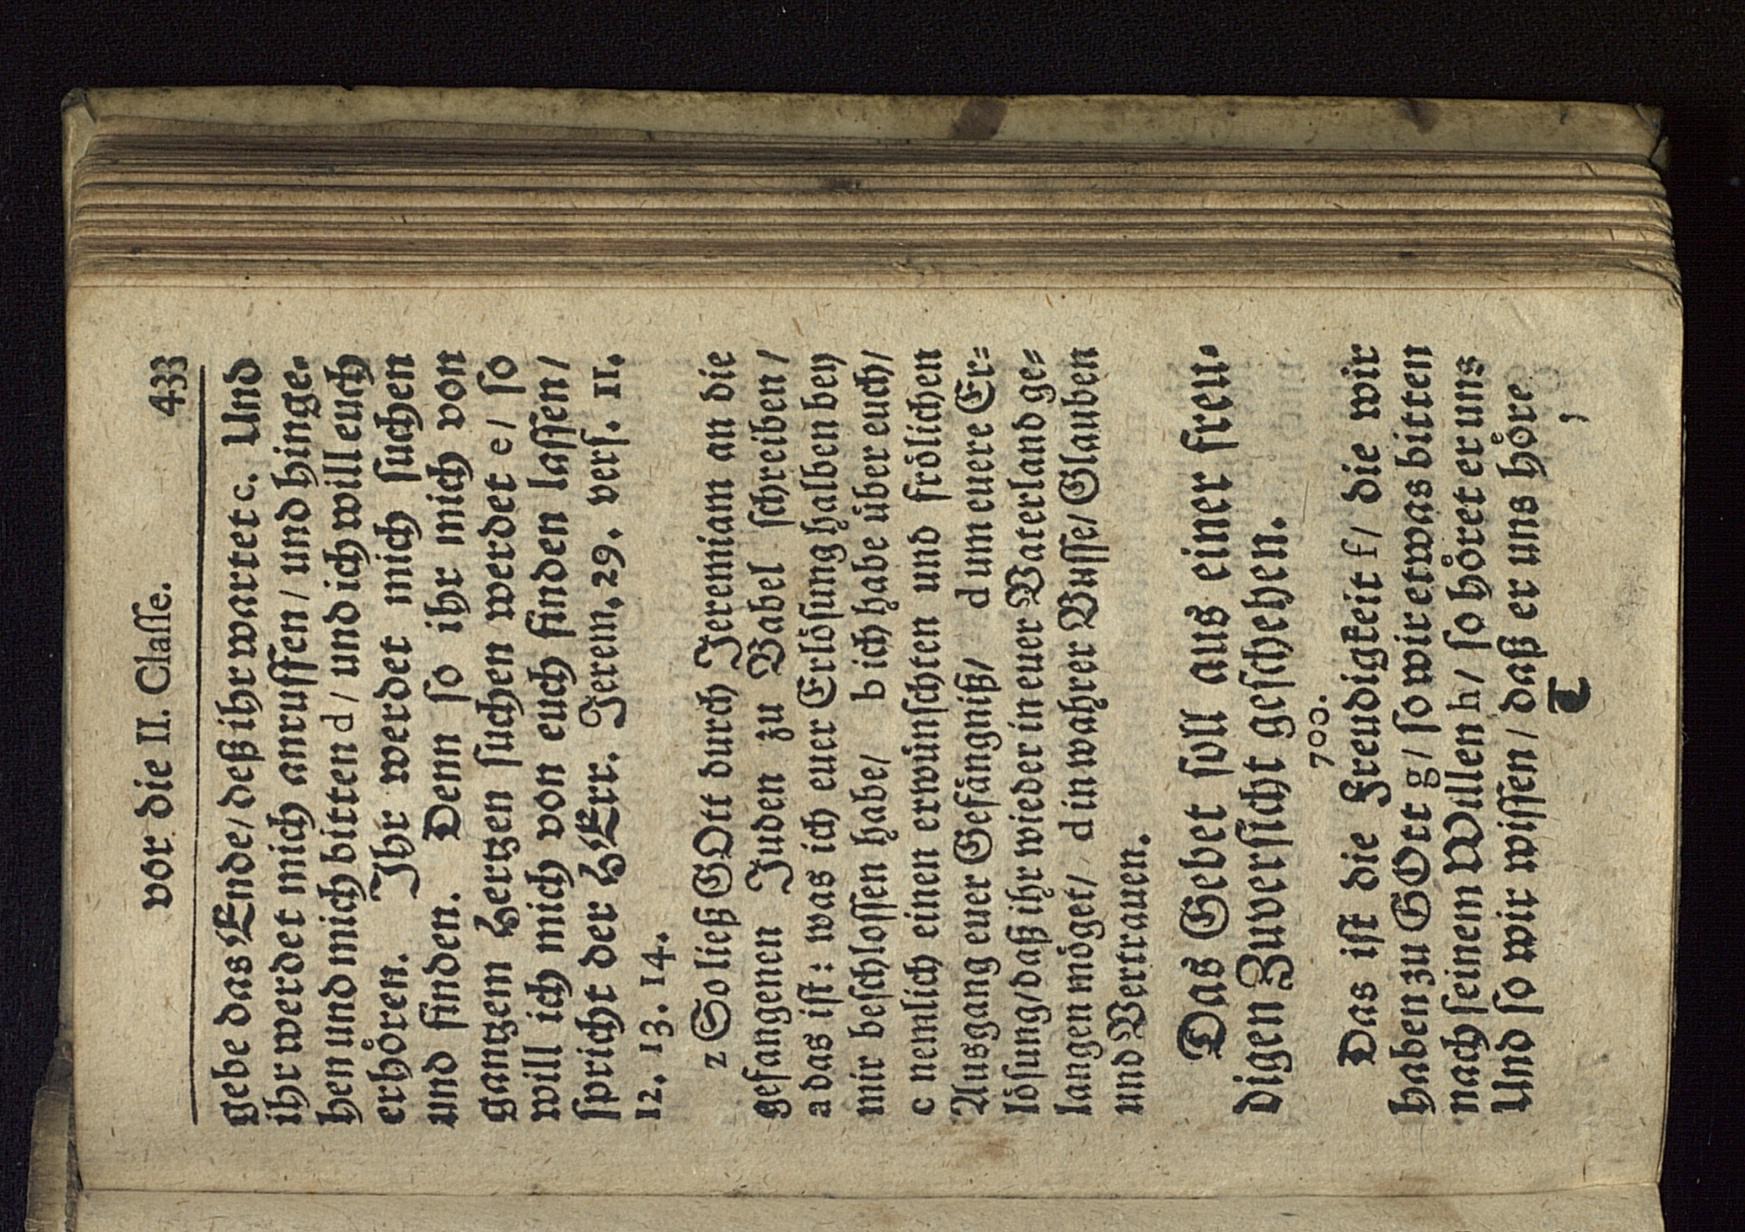 vor die II. Classe. 433
gebe das Ende/ deß ihr wartet c. Und
ihr werdet mich anruffen/ und hinge-
hen und mich bitten d/ und ich will euch
erhoͤren. Ihr werdet mich suchen
und finden. Denn so ihr mich von
gantzem Hertzen suchen werdet e/ so
will ich mich von euch finden lassen/
spricht der HErr. Jerem. 29. vers. 11.
12. 13. 14.
z So ließ GOtt durch Jeremiam an die
gefangenen Juden zu Babel schreiben/
a das ist: was ich euer Erloͤsung halben bey
mir beschlossen habe/ b ich habe uͤber euch/
c nemlich einen erwuͤnschten und froͤlichen
Ausgang euer Gefaͤngniß/ d um euere Er-
loͤsung/ daß ihr wieder in euer Vaterland ge-
langen moͤget/ d in wahrer Busse/ Glauben
und Vertrauen.
Das Gebet soll aus einer freu-
digen Zuversicht geschehen.
700.
Das ist die Freudigkeit f/ die wir
haben zu GOtt g/ so wir etwas bitten
nach seinem Willen h/ so hoͤret er uns
Und so wir wissen/ daß er uns hoͤre
T